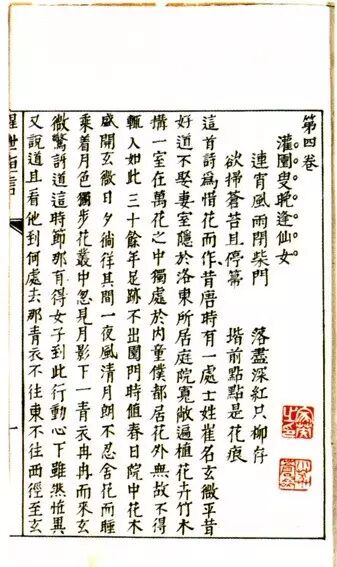 第四卷
灌園叟晚逢仙女
連宵風雨閉柴門 落盡深紅只柳存
欲掃蒼苔且停箒 堦前點點是花痕
這首詩爲惜花而作昔唐時有一處士姓崔名玄微平昔
好道不娶妻室隱於洛東所居庭院寬敞遍植花卉竹木
搆一室在萬花之中獨處於內童僕都居花外無故不得
輒入如此三十餘年足跡不出園門時值春日院中花木
盛開玄微日夕徜徉其間一夜風清月朗不忍舍花而睡
乘着月色獨步花叢中忽見月影下一青衣冉冉而來玄
微驚訝道這時節那有得女子到此行動心下雖然恠異
又說道且看他到何處去那青衣不往東不往西徑至玄
醒世恒言
一